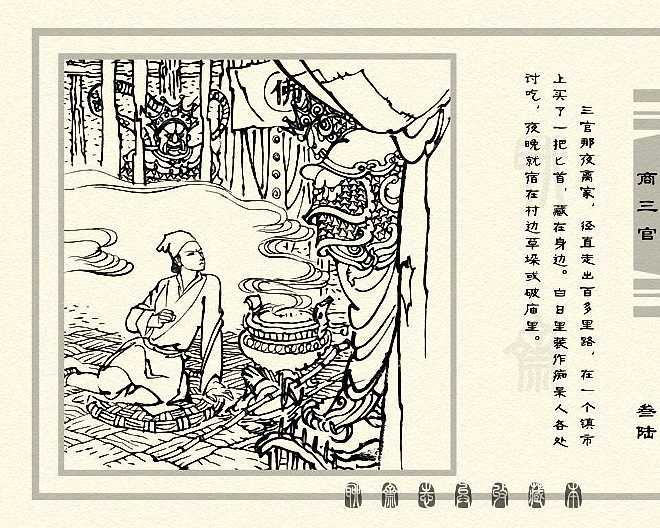 商三官
叁陆
三官那夜离家，径直走出百多里路，在一个镇市
上买了一把匕首，藏在身边。白日里装作痴呆人各处
讨吃，夜晚就宿在村边草垛或破庙里。
佛
聊斋志异收藏本